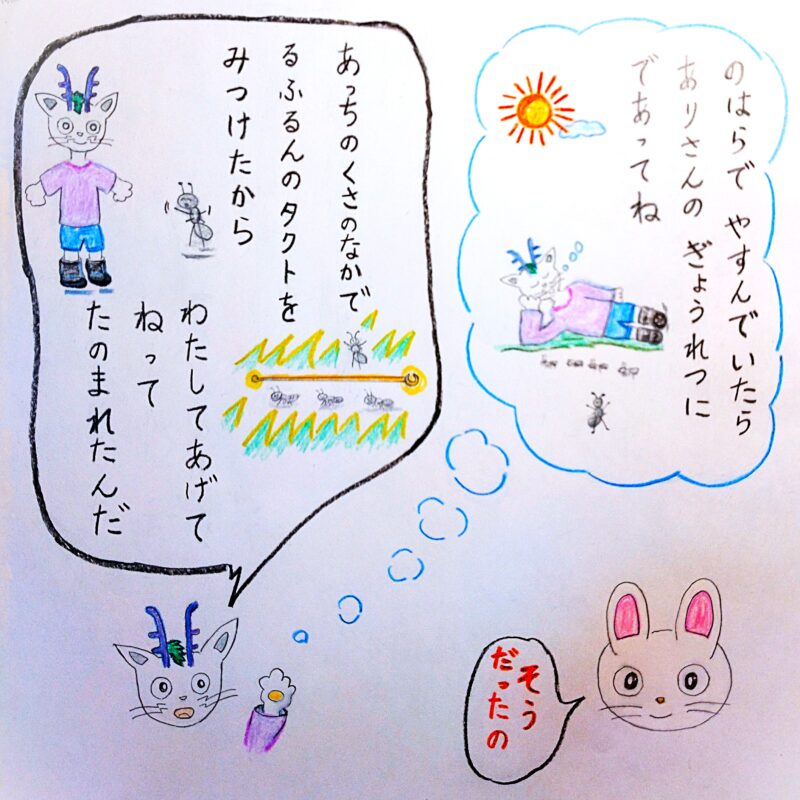 のはらで やすんでいたら
ありさんの ぎょうれつに
であってね
あっちのくさのなかで
るふるんのタクトを
みつけたから
わたしてあげて
ねって
たのまれたんだ
そう
だったの